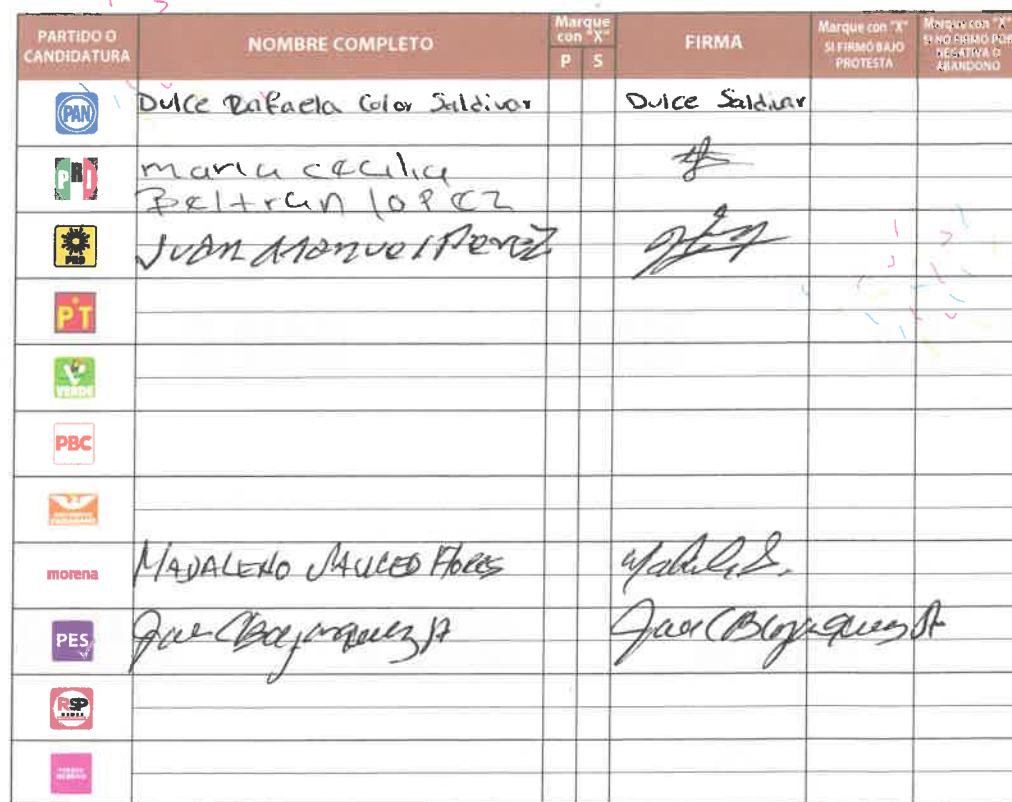 PARTIDO O CANDIDATURA
NOMBRE COMPLETO
Marque con "X"
P S
FIRMA
Marque con "X" SI FIRMÓ BAJO PROTESTA
Marque con "X" SI NO FIRMÓ POR NEGATIVA O ABANDONO
PAN Dulce Rafaela Color Saldivar Dulce Saldivar
PRI maria cecilia
Beltran lopez
PRD Juan Manuel Perez
PT
VERDE
PBC
CIUDADANO
morena MADALENO SAUCEDO Flores
PES Jose Bojorquez
RSP